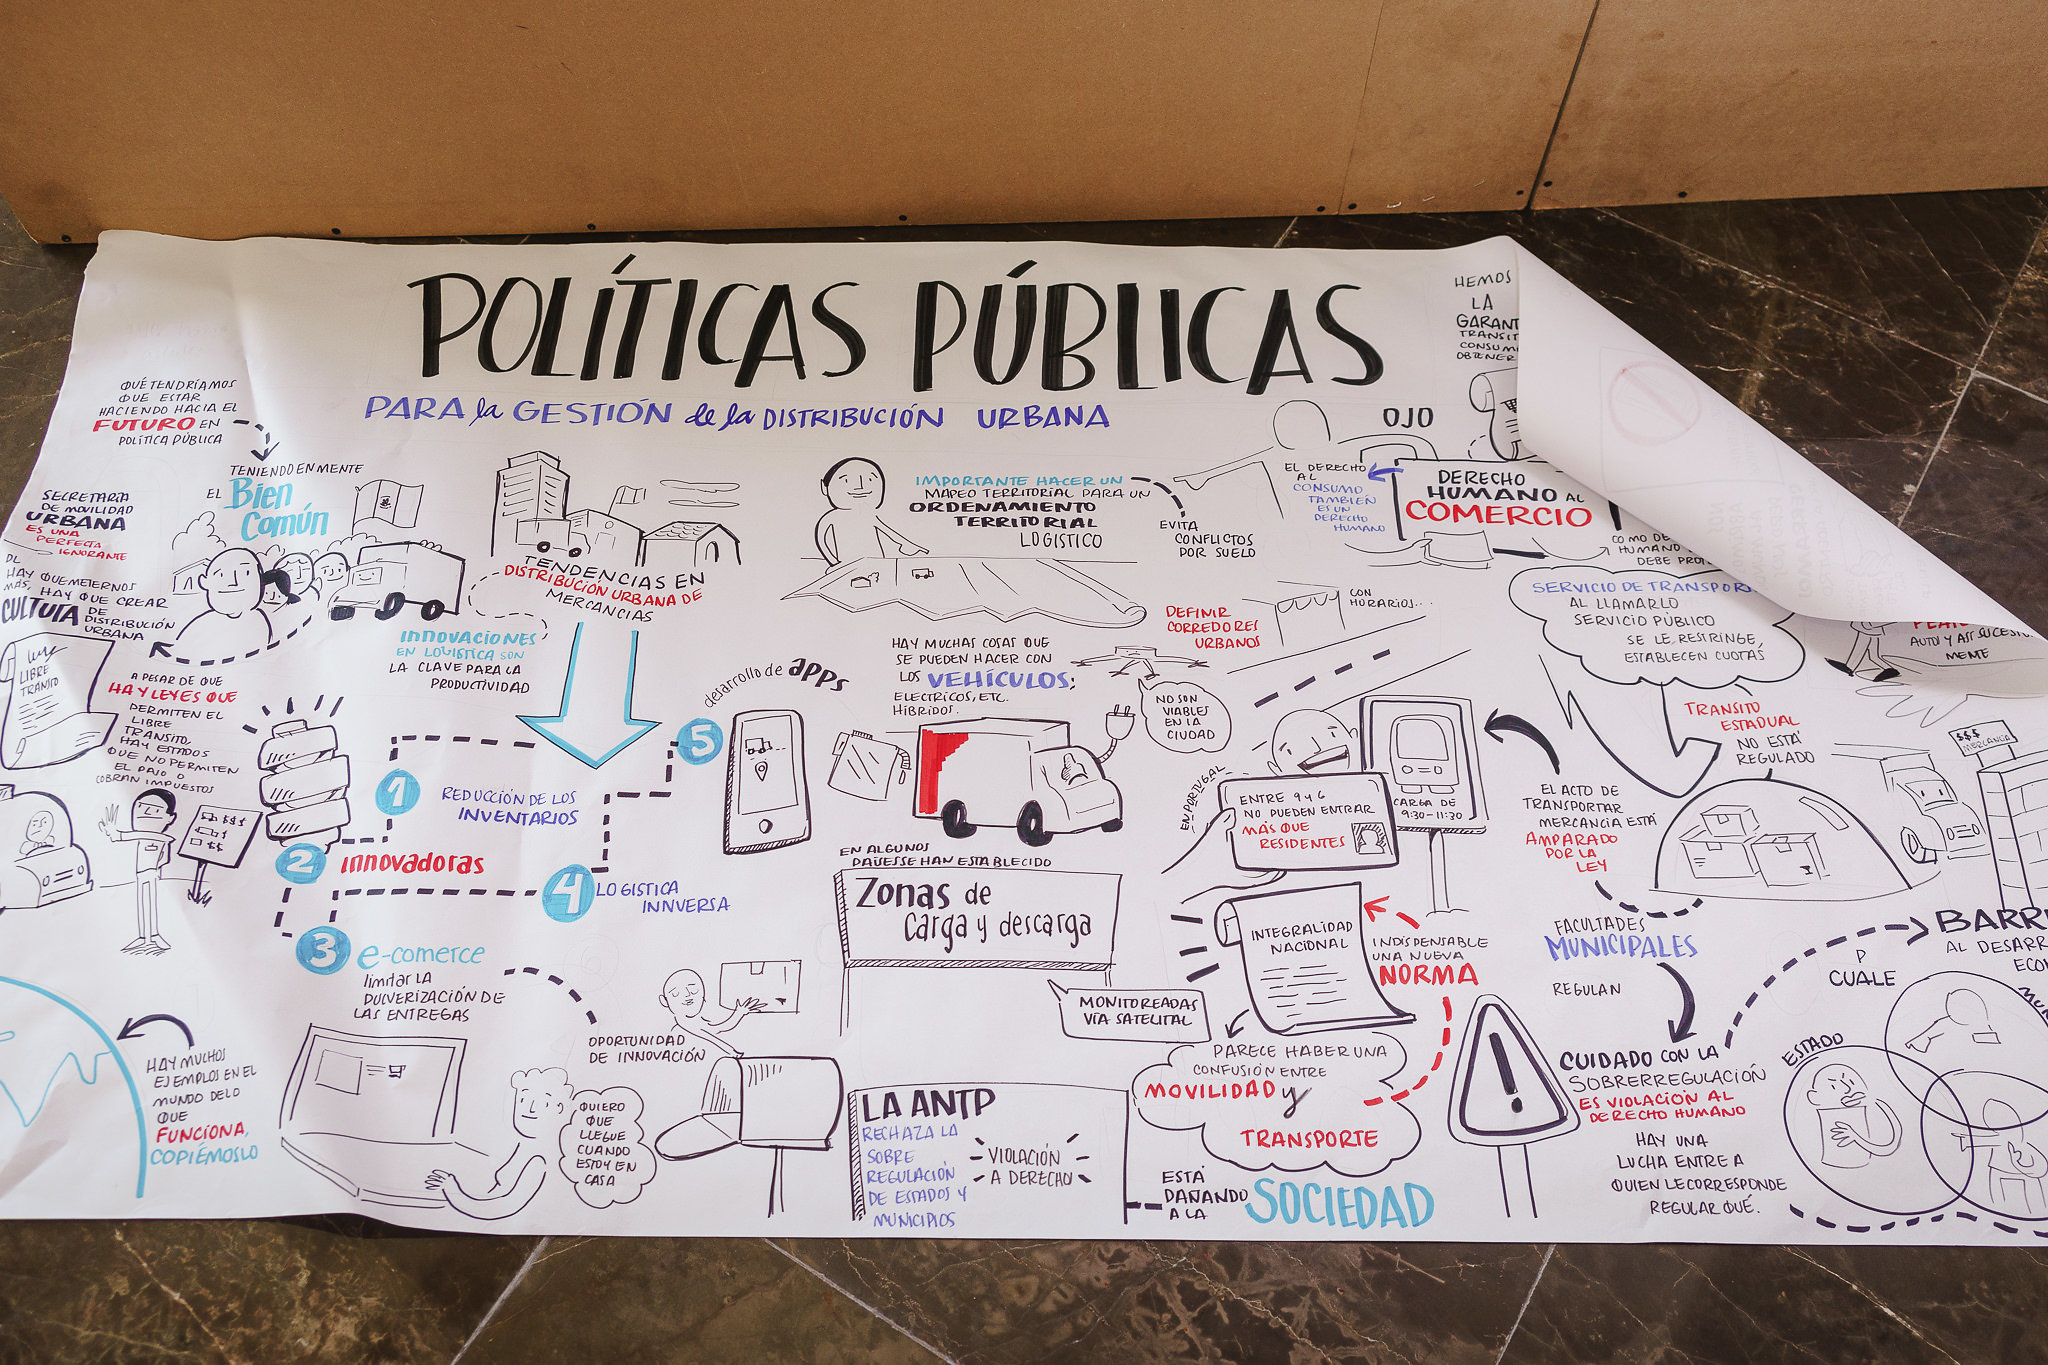 POLÍTICAS PÚBLICAS
PARA la GESTIÓN de la DISTRIBUCIÓN URBANA
QUÉ TENDRÍAMOS
QUE ESTAR
HACIENDO HACIA EL
FUTURO EN
POLÍTICA PÚBLICA
TENIENDO EN MENTE
EL Bien
Común
SECRETARÍA
DE MOVILIDAD
URBANA
ES UNA
PERFECTA
IGNORANTE
HAY QUE METERNOS
MÁS, HAY QUE CREAR
CULTURA DE
DISTRIBUCIÓN
URBANA
LIBRE
TRÁNSITO
A PESAR DE QUE
HAY LEYES QUE
PERMITEN EL
LIBRE
TRANSITO,
HAY ESTADOS
QUE NO PERMITEN
EL PASO O
COBRAN IMPUESTOS
$$$
$$
$$
HAY MUCHOS
EJEMPLOS EN EL
MUNDO DE LO
QUE
FUNCIONA,
COPIÉMOSLO
TENDENCIAS EN
DISTRIBUCIÓN URBANA DE
MERCANCÍAS
INNOVACIONES
EN LOGÍSTICA SON
LA CLAVE PARA LA
PRODUCTIVIDAD
1
REDUCCIÓN DE LOS
INVENTARIOS
2 innovadoras
3 e-comerce
limitar LA
PULVERIZACIÓN DE
LAS ENTREGAS
4 LOGISTICA
INNVERSA
5
desarrollo de apps
OPORTUNIDAD
DE INNOVACIÓN
QUIERO
QUE
LLEGUE
CUANDO
ESTOY EN
CASA
IMPORTANTE HACER UN
MAPEO TERRITORIAL PARA UN
ORDENAMIENTO
TERRITORIAL
LOGISTICO
EVITA
CONFLICTOS
POR SUELO
HAY MUCHAS COSAS QUE
SE PUEDEN HACER CON
LOS VEHÍCULOS:
ELECTRICOS, ETC.
HÍBRIDOS.
NO SON
VIABLES
EN LA
CIUDAD
DEFINIR
CORREDORES
URBANOS
CON
HORARIOS...
EN ALGUNOS
PAÍSES SE HAN ESTABLECIDO
Zonas de
Carga y descarga
MONITOREADAS
VÍA SATELITAL
LA ANTP
RECHAZA LA
SOBRE
REGULACIÓN
DE ESTADOS Y
MUNICIPIOS
VIOLACIÓN
A DERECHO
ESTÁ
DAÑANDO
A LA
SOCIEDAD
EN PORTUGAL
ENTRE 9 y 6
NO PUEDEN ENTRAR
MÁS QUE
RESIDENTES
CARGA DE
9:30-11:30
INTEGRALIDAD
NACIONAL
INDISPENSABLE
UNA NUEVA
NORMA
PARECE HABER UNA
CONFUSIÓN ENTRE
MOVILIDAD y
TRANSPORTE
HEMOS
LA
GARANT
TRANSIT
CONSUM
OBTENER
OJO
EL DERECHO
AL
CONSUMO
TAMBIÉN
ES UN
DERECHO
HUMANO
DERECHO
HUMANO AL
COMERCIO
COMO DE
HUMANO
DEBE PROT
SERVICIO DE TRANSPOR
AL LLAMARLO
SERVICIO PÚBLICO
SE LE RESTRINGE,
ESTABLECEN CUOTAS
AUTO Y ASÍ SUCESIVA
MENTE
TRANSITO
ESTADUAL
NO ESTÁ
REGULADO
$$$
MERCANCÍA
EL ACTO DE
TRANSPORTAR
MERCANCÍA ESTÁ
AMPARADO
POR LA
LEY
FACULTADES
MUNICIPALES
REGULAN
CUIDADO CON LA
SOBRERREGULACIÓN
ES VIOLACIÓN AL
DERECHO HUMANO
HAY UNA
LUCHA ENTRE A
QUIEN LE CORRESPONDE
REGULAR QUÉ.
BARR
AL DESAR
ECO
P
CUALE
ESTADO